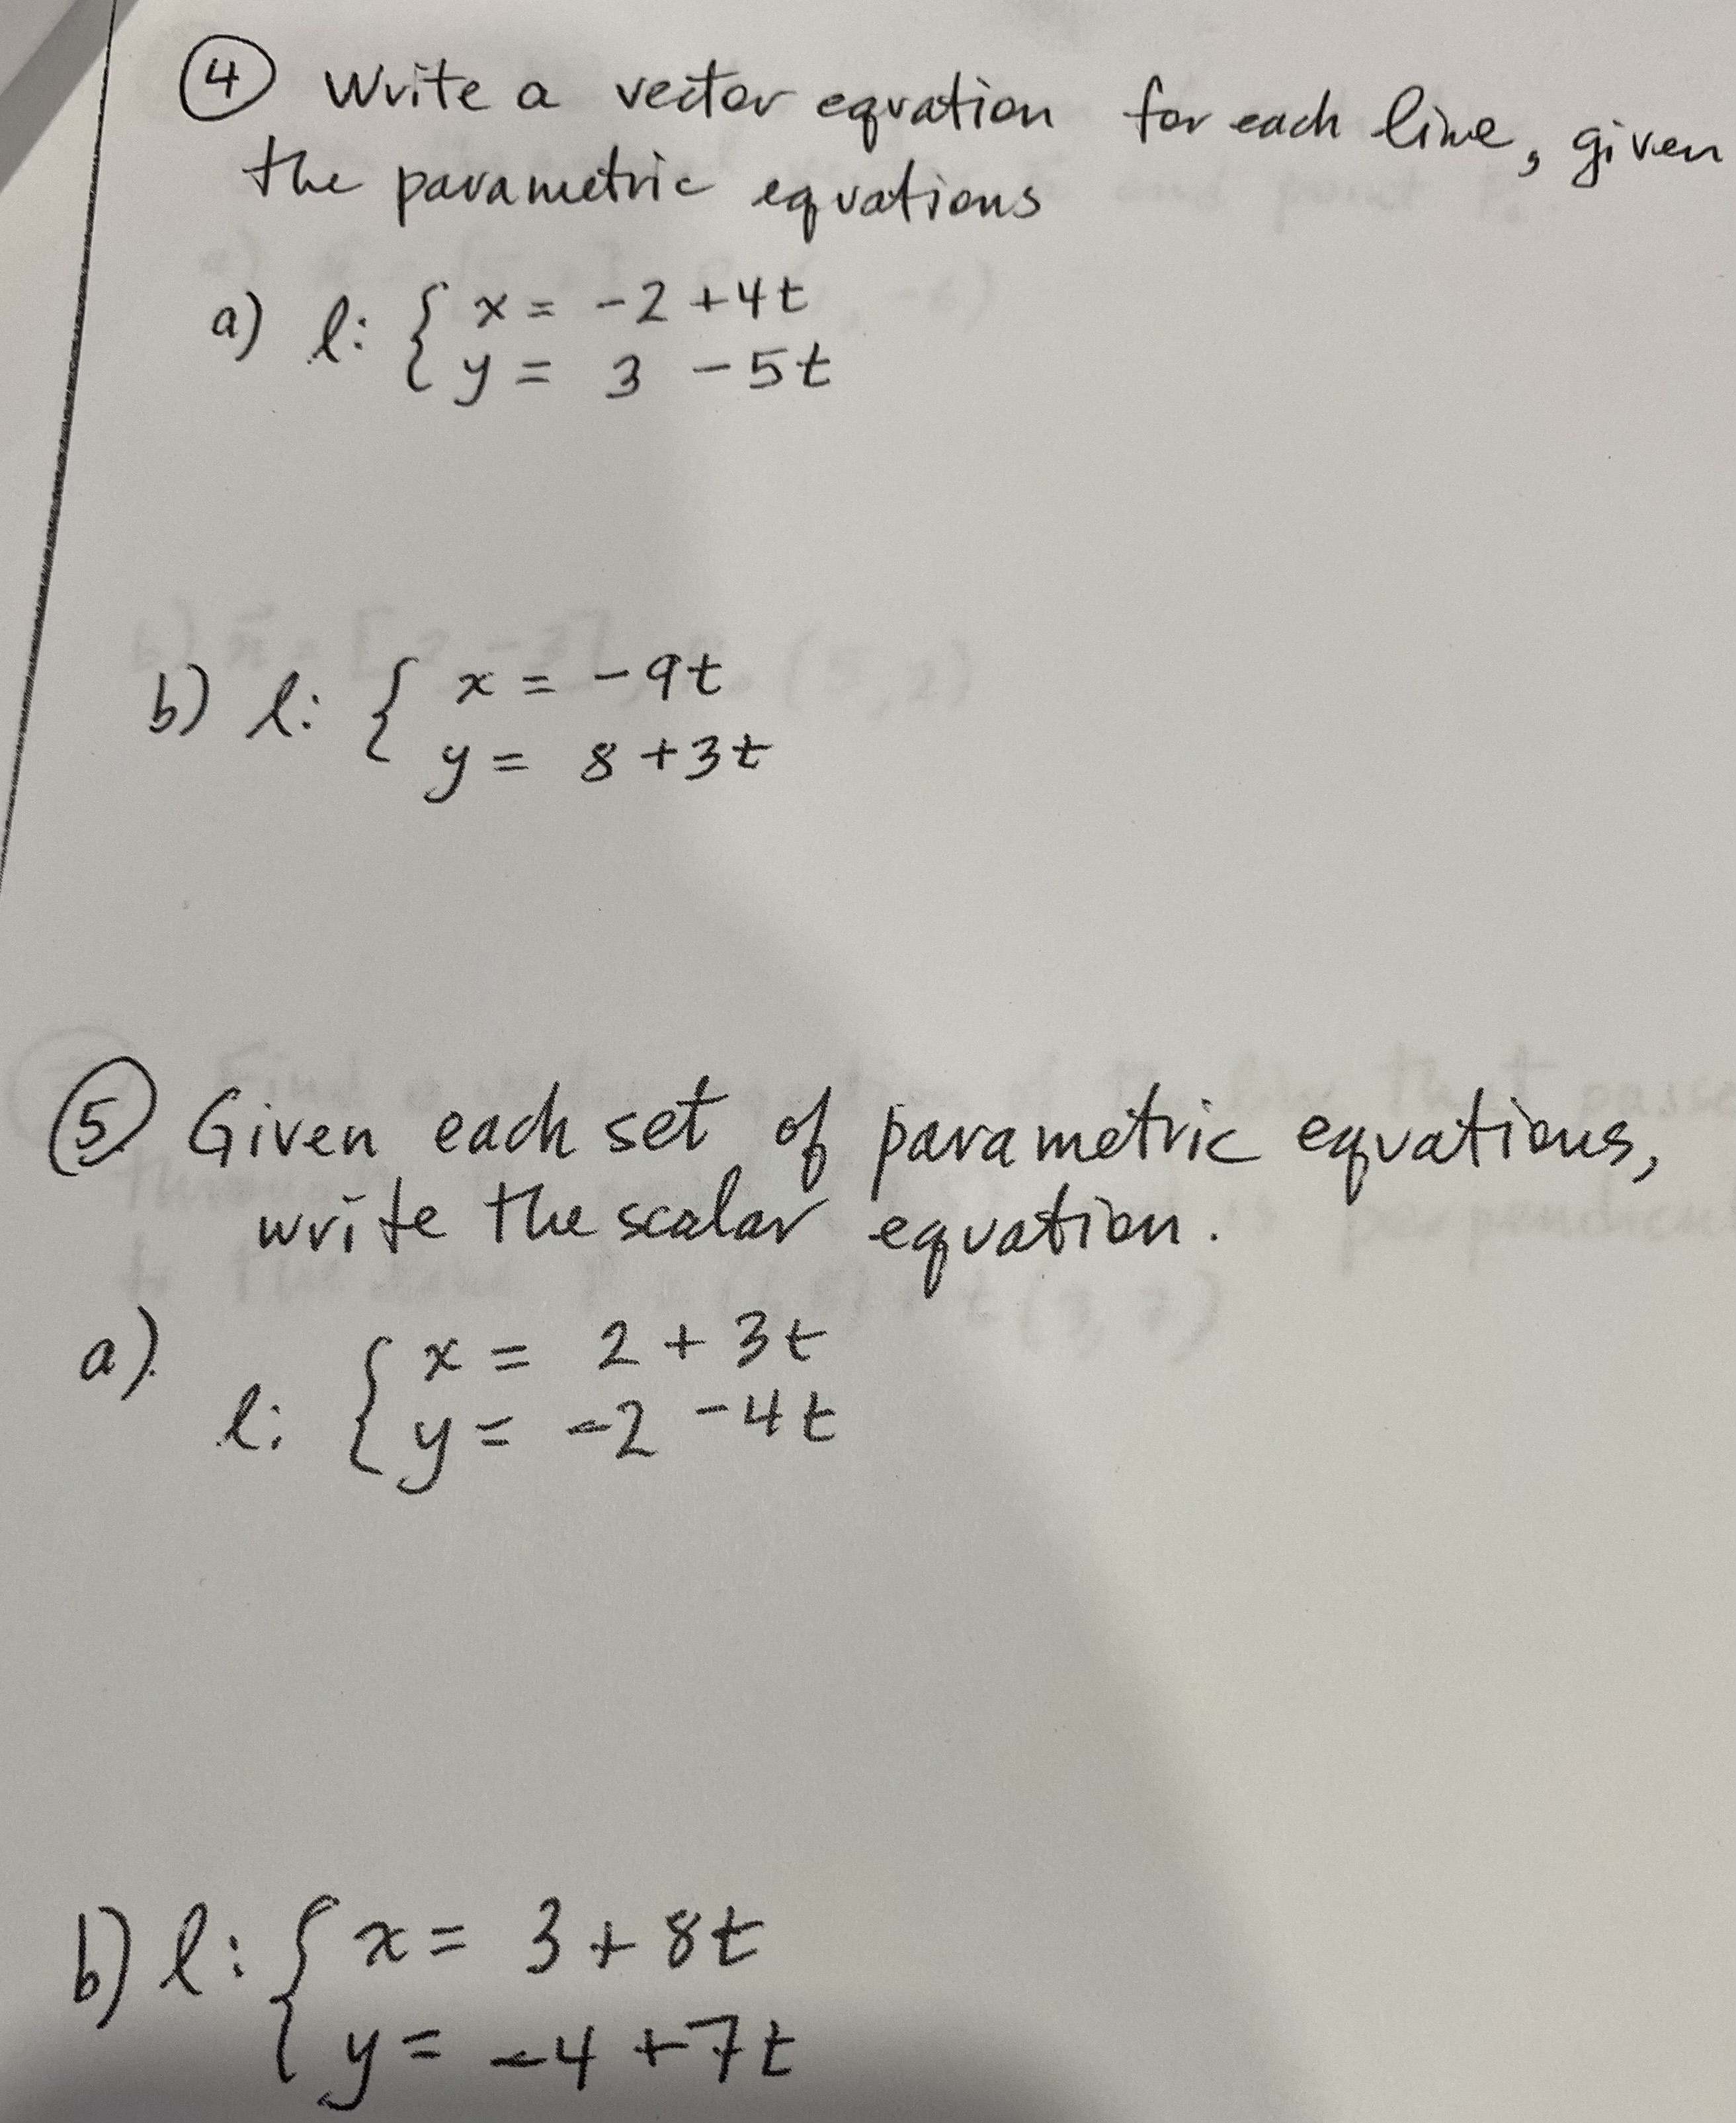 ④ Write a vector equation for each line, given
the parametric equations
a) l: { x = -2 + 4t
y = 3 - 5t
b) l: { x = -9t
y = 8 + 3t
⑤ Given each set of parametric equations,
write the scalar equation.
a)
l: { x = 2 + 3t
y = -2 - 4t
b) l: { x = 3 + 8t
y = -4 + 7t